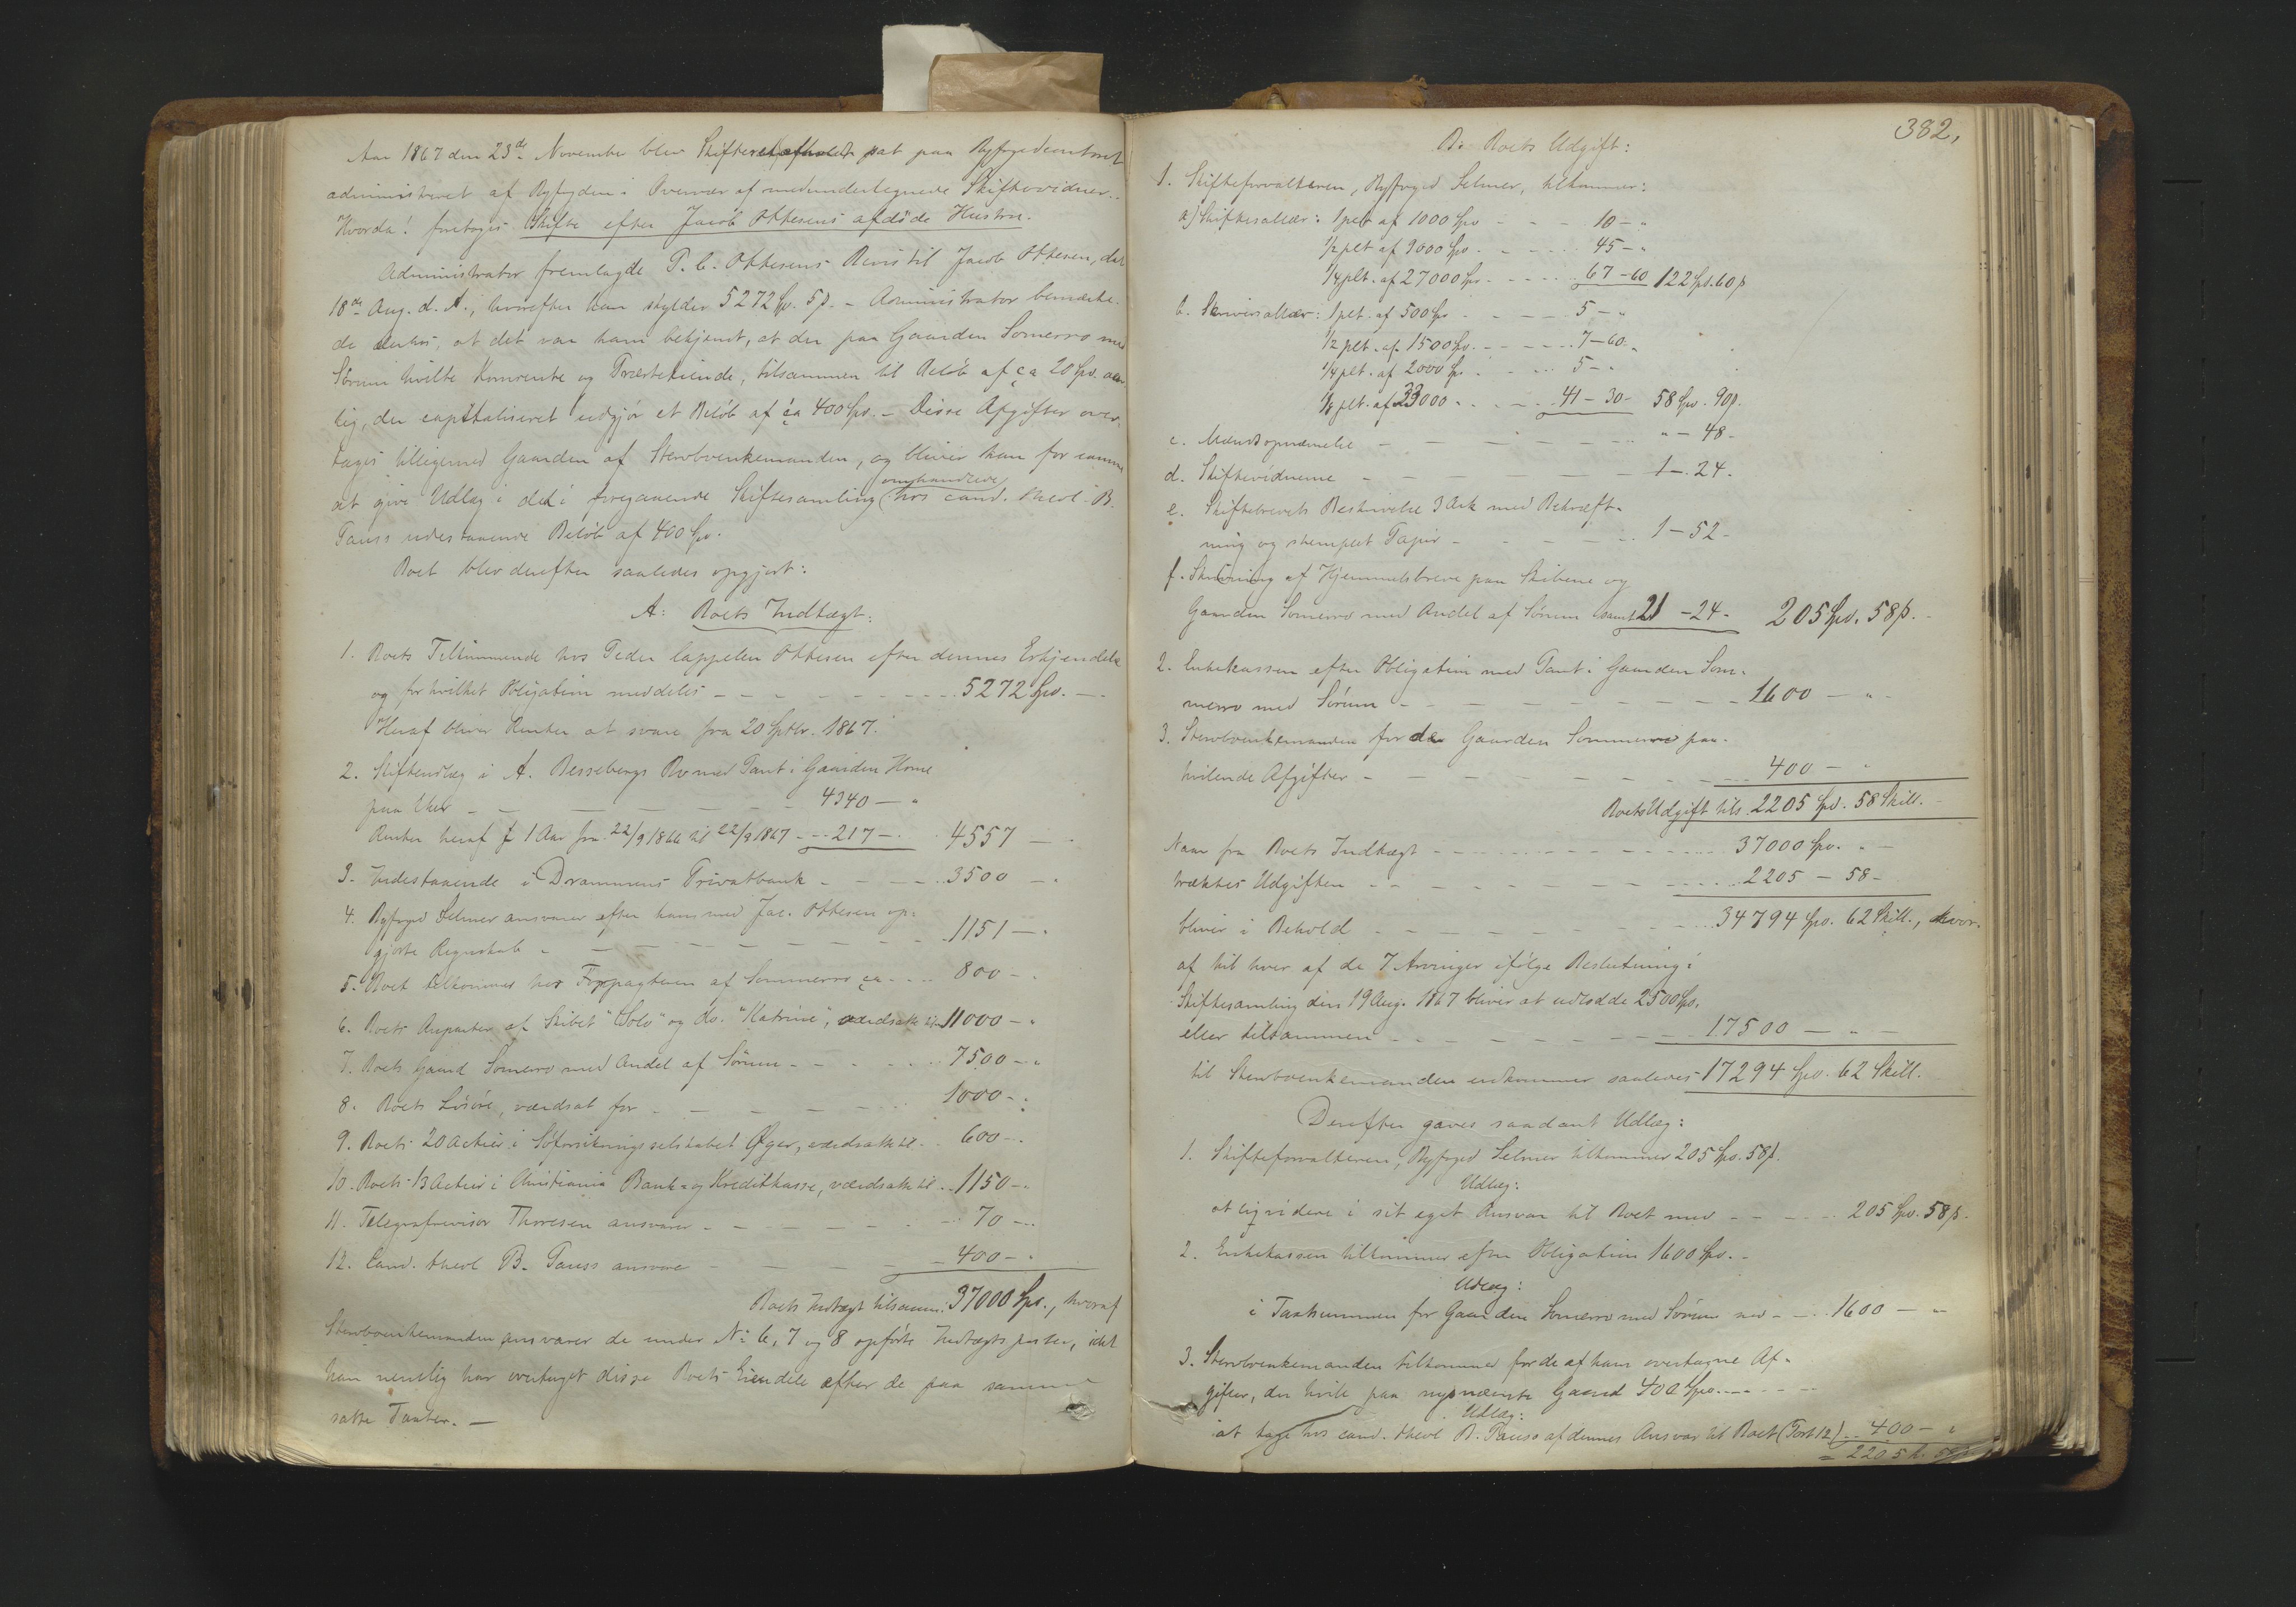 Aar 1867 den 23de November blev Skifteret afholdt sat paa Byfogedcontoret
administreret af Byfogden i Overvær af medundertegnede Skiftevidner.
Hvorda! foretoges Skifte efter Jacob Ottesens afdøde Hustru.
Administrator fremlagde P. C. Ottesens Bevis til Jacob Ottesen, dat
18de Aug. d. A., hvorefter han skylder 5272 Spd. 5 ß. – Administrator bemærke-
de derhos, at det var ham bekjendt, at der paa Gaarden Somerro med
Sørum hvilte Kornrente og Præstetiende, tilsammen til Beløb af ca 20 Spd. aar-
lig, der capitaliseret udgjør et Beløb af ca 400 Spd. – Disse Afgifter over-
tages tilligemed Gaarden af Stervboenkemanden, og bliver han for samme
at give Udlæg i det i foregaaende Skiftesamling omhandlede hos cand. theol. B.
Pauss udestaaende Beløb af 400 Spd.
Boet blev derefter saaledes opgjort:
A: Boets Indtægt:
1. Boets Tilkommende hos Peder Cappelen Ottesen efter dennes Erkjendelse
og for hvilket Obligation meddeles – – – 5272 Spd. –
Heraf bliver Renter at svare fra 20 Septbr. 1867.
2. Skifteudlæg i A. Bessebergs Bo med Pant i Gaarden Horne
paa Eker – – – 4340 – "
Renter heraf f 1 Aar fra 22/9 1866 til 22/9 1867 – – 217 – . 4557 – .
3. Indestaaende i Drammens Privatbank – – – 3500 – .
4. Byfoged Selmer ansvarer efter ham med Jac. Ottesen op-
gjorte Regnskab – – – 1151 – .
5. Boet tilkommer hos Forpagteren af Sommerro ca – – 800 – .
6. Boets Anparter af Skibet "Solo" og do. "Katrine", værdsatte til 11000 – "
7. Boets Gaard Somerro med Andel af Sørum – – – 7500 – "
8. Boets Løsøre, værdsat for – – – 1000 – .
9. Boets 20 Actier i Søforsikringsselskabet Øger, værdsatte til – 600 – .
10. Boets 13 Actier i Christiania Bank- og Kreditkasse, værdsatte til – 1150 – .
11. Telegrafrevisor Thoresen ansvarer – – – 70 – .
12. Cand. theol B. Pauss ansvarer – – – 400 – .
Boets Indtægt tilsamm. 37000 Spd., hvoraf
Stervboenkemanden ansvarer de under No 6, 7 og 8 opførte Indtægtsposter, idet
han nemlig har overtaget disse Boets Eiendele efter de paa samme
satte Taxter. –
382,
B: Boets Udgift:
1. Skifteforvalteren, Byfoged Selmer, tilkommer:
a) Skiftesallær: 1 pct af 1000 Spd – – 10 – "
1/2 plt af 9000 Spd. – – 45 – "
1/4 plt. af 27000 Spd. – – 67 – 60 122 Spd. 60 ß
b. Skriversallær: 1 plt. af 500 Spd – – 5 – "
1/2 plt. af 1500 Spd. – – 7 – 60 "
1/4 plt. af 2000 Spd. – – 5 – "
1/8 plt. af 33000 – – 41 – 30 – 58 Spd. 90 ß.
c. Mændsopnævnelse – – – " – 48 –
d. Skiftevidnerne – – – 1 – 24 –
e. Skiftebrevets Beskrivelse 3 Ark med Bekræft-
ning og stemplet Papir – – – 1 – 52 –
f. Skrivning af Hjemmelsbreve paa Skibene og
Gaarden Somerro med Andel af Sørum samt 21 – 24 – 205 Spd. 58 ß. –
2. Enkekassen efter Obligation med Pant i Gaarden Som-
merro med Sørum – – – 1600 – "
3. Stervboenkemanden for de Gaarden Sommerro paa-
hvilende Afgifter – – – 400 – "
Boets Udgift tils. 2205 Spd. 58 Skill. –
Naar fra Boets Indtægt – – – 37000 Spd. " –
trækkes Udgiften – – – 2205 – 58 –
bliver i Behold – – – 34794 Spd. 62 Skill., hvor-
af til hver af de 7 Arvinger ifølge Beslutning i
Skiftesamling den 19 Aug. 1867 bliver at udlodde 2500 Spd.
eller tilsammen – – – 17500 – " –
til Stervboenkemanden udkommer saaledes 17294 Spd. 62 Skill.
Derefter gaves saadant Udlæg:
1. Skifteforvalteren, Byfoged Selmer tilkommer 205 Spd. 58 ß.
Udlæg:
at liqvidere i sit eget Ansvar til Boet med – – – 205 Spd. 58 ß.
2. Enkekassen tilkommer efter Obligation 1600 Spd. –
Udlæg:
i Taxtsummen for Gaarden Somerro med Sørum med – – 1600 – "
3. Stervboenkemanden tilkommer for de af ham overtagne Af-
gifter, der hvile paa nysnævnte Gaard 400 Spd. – – –
Udlæg:
at tage hos cand. theol B. Pauss af dennes Ansvar til Boet (Post 12) – 400 – "
= 2205 Sp. 58 ß